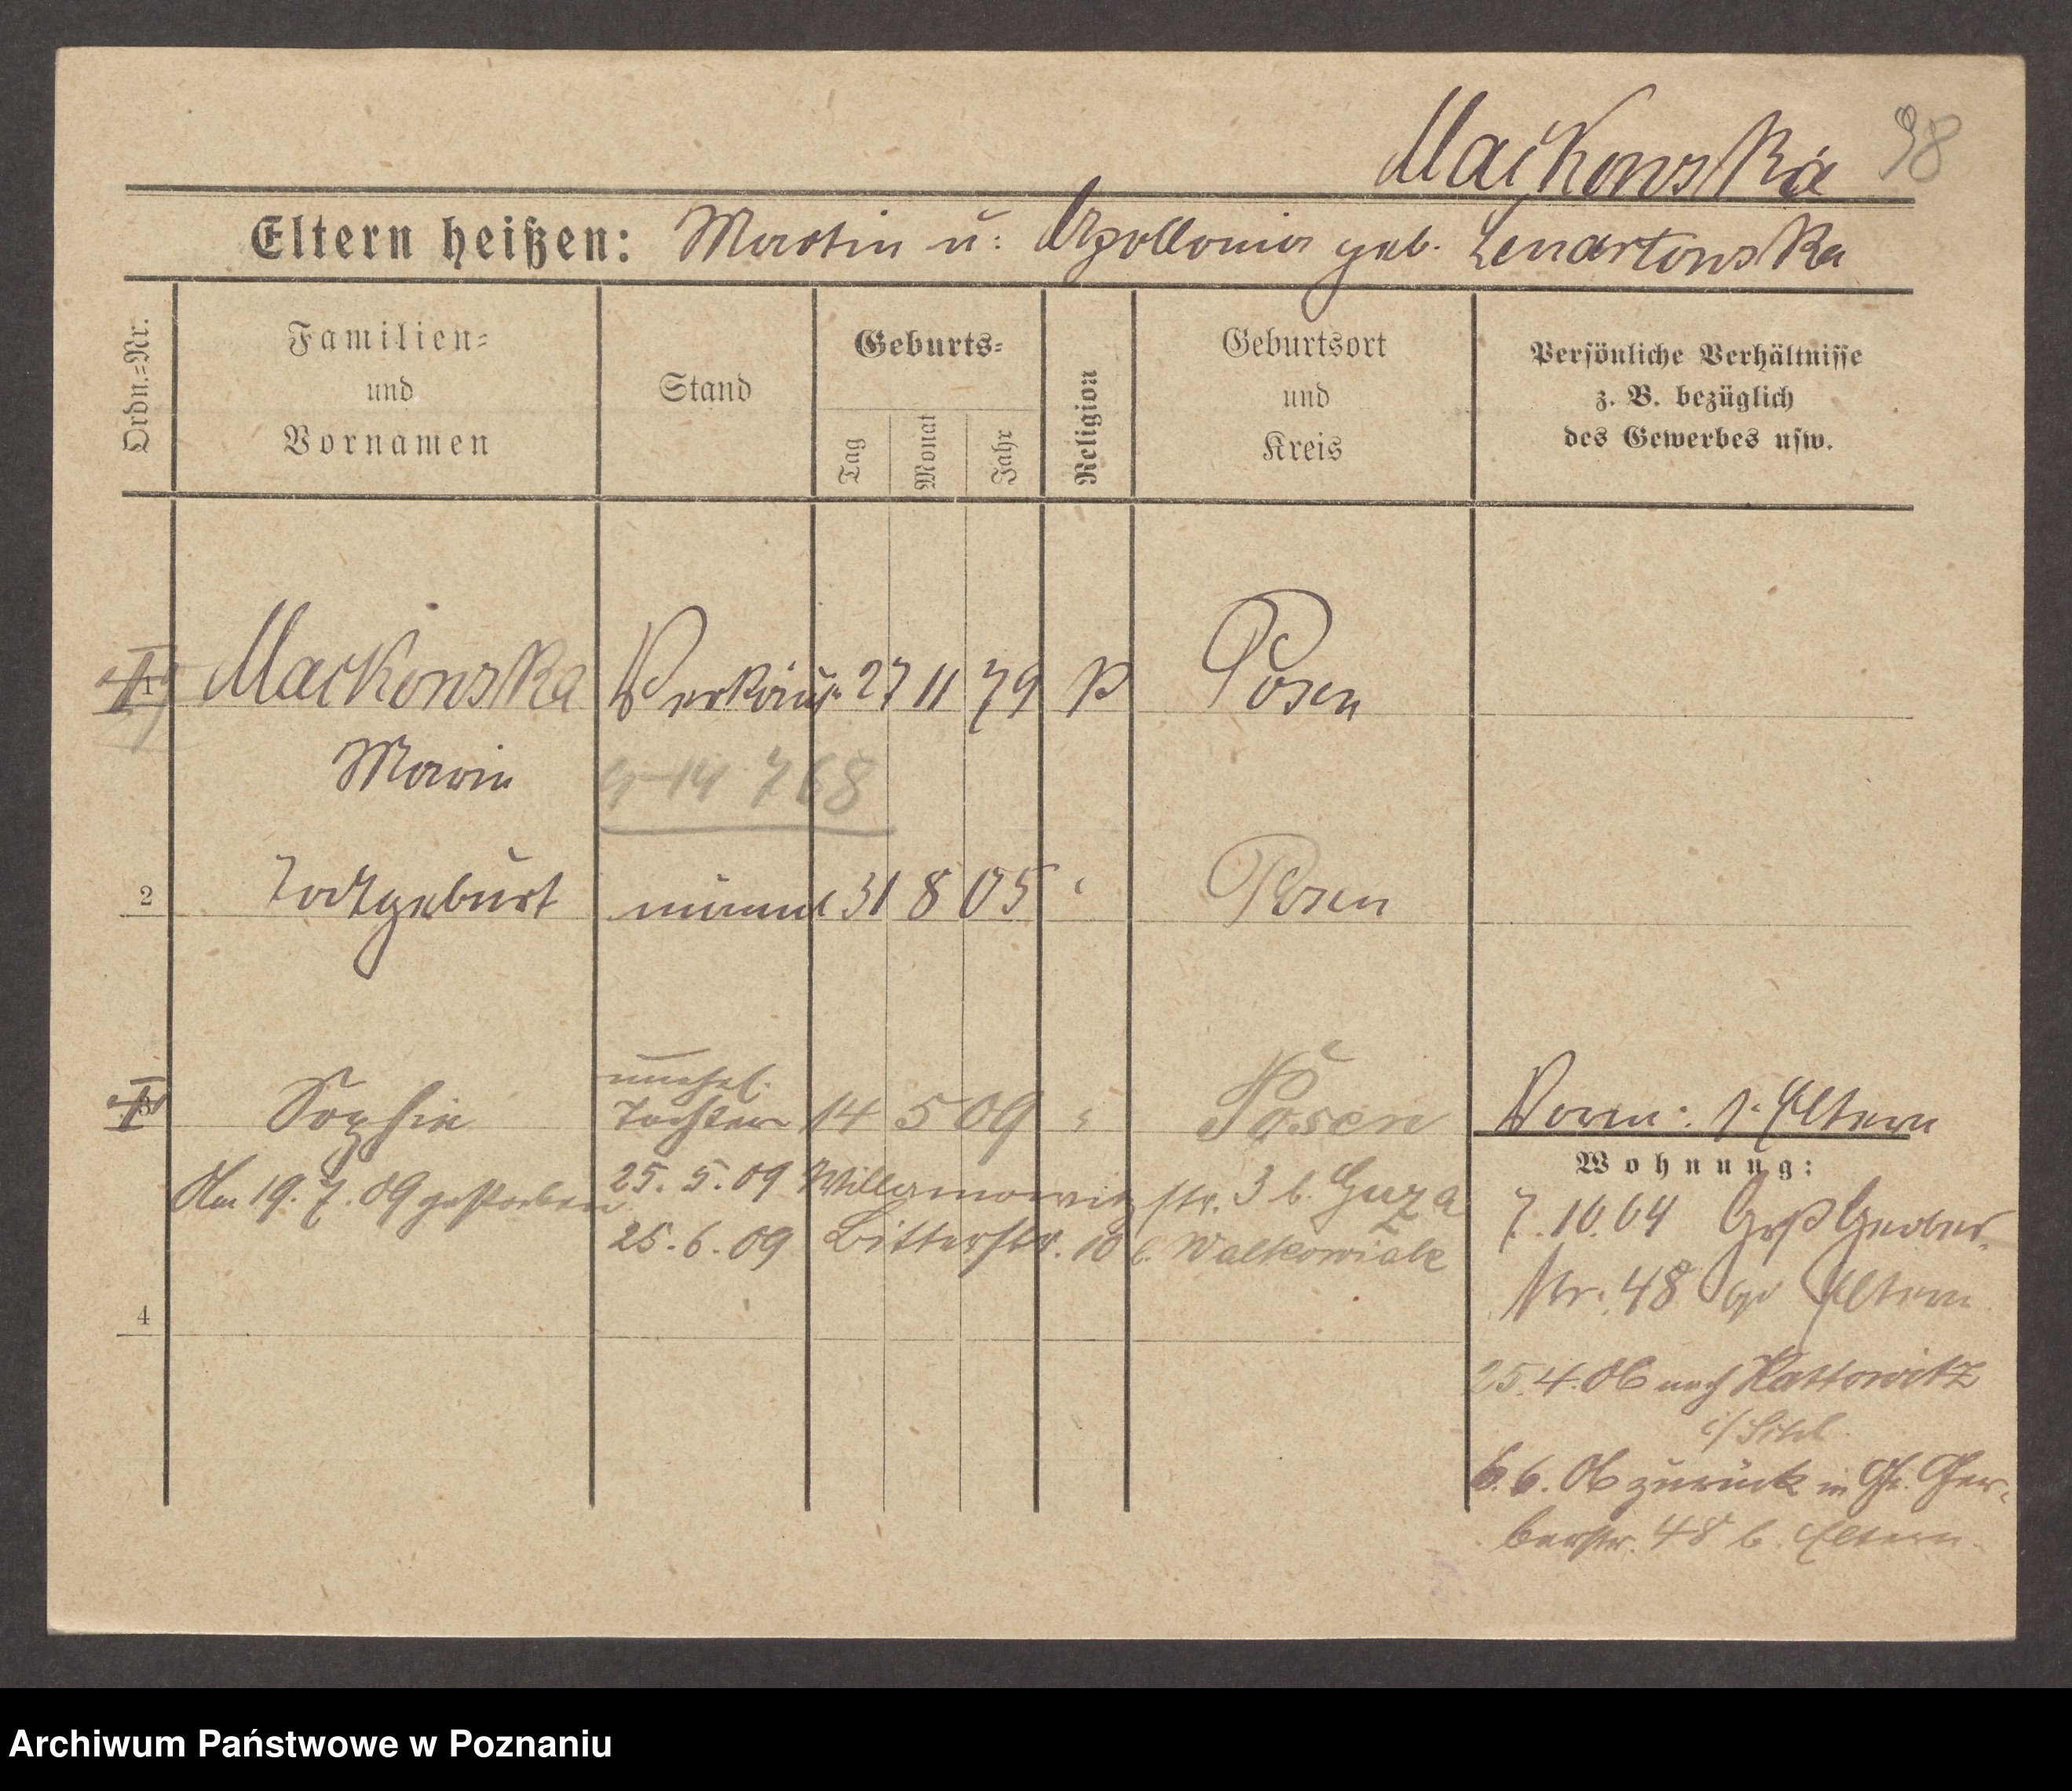 Maćkowska 98
Eltern heißen: Martin u. Apollonia geb. Lenartowska
Ordn.-Nr.
Familien-
und
Vornamen
Stand
Geburts-
Tag
Monat
Jahr
Religion
Geburtsort
und
Kreis
Persönliche Verhältnisse
z. B. bezüglich
des Gewerbes usw.
1 Maćkowska Verkäuf. 27 11 79 k Posen
Marie
14 768
2 Todtgeburt männl 31 8 05 " Posen
unehel.
3 Sophie Tochter 14 5 09 " Posen
Am 19. 7. 09 gestorben
25. 5. 09 str. 3 b. Guza
25. 6. 09 Bitterstr. 10 b. Walkowiak
4
Vorm: s. Eltern
Wohnung:
7.10.04 Gerber-
str. 48 bei Eltern
25.4.06 nach Kattowitz
6.6.06 zurück in Gr. Ger-
berstr. 48 b. Eltern
Archiwum Państwowe w Poznaniu